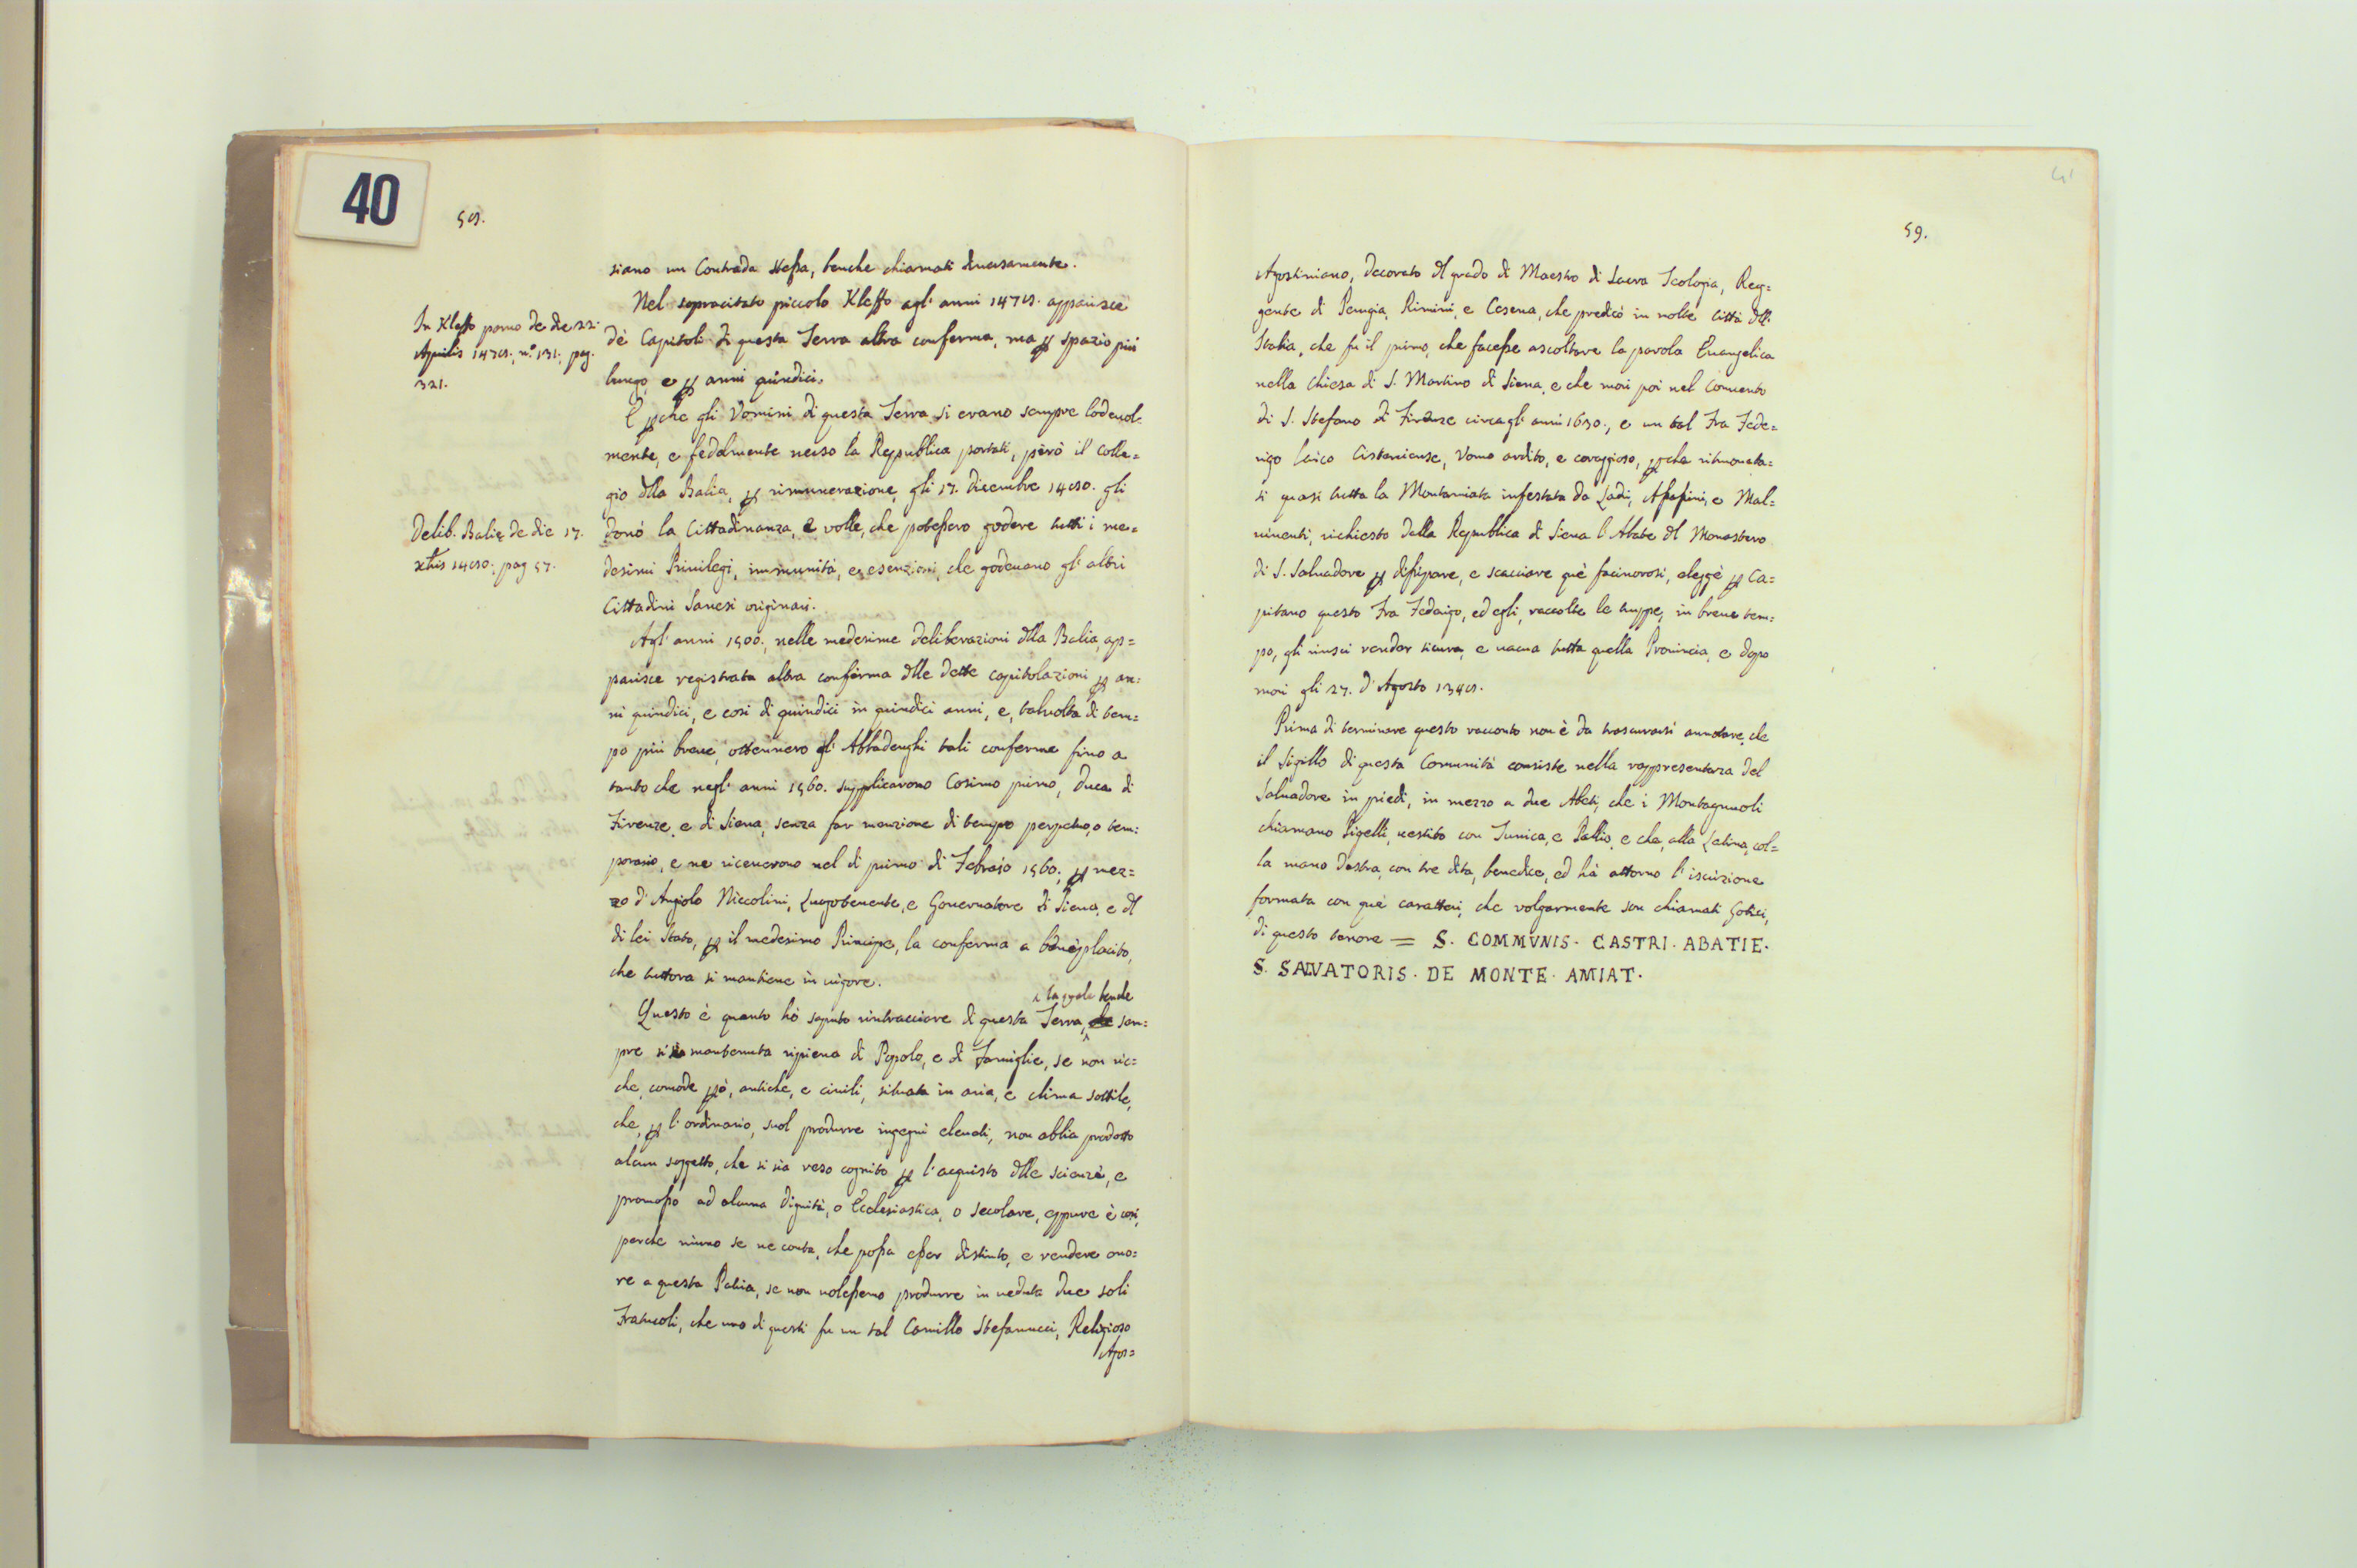 40
58.
siano un Contrada stessa, benche chiamati diversamente.
Nel sopracitato piccolo Kleffo agl' anni 1478. apparisce
dè Capitoli di questa Terra altra conferma, ma p spazio più
lungo, e p anni quindici.
In Kleffo parvo de die 22.
Aprilis 1478., n.º 131., pag.
321.
E pche gli Vomini di questa Terra si erano sempre lodevol=
mente, e fedelmente verso la Republica portati, però il Colle=
gio dlla Balia, p rimunerazione, gli 17. Dicembre 1480. gli
donò la Cittadinanza, e volle, che potessero godere tutti i me=
desimi Privilegi, immunità, ed esenzioni, che godevano gl' altri
Cittadini Sanesi originari.
Delib. Balię de die 17.
xbris 1480., pag 57.
Agl' anni 1500., nelle medesime deliberazioni dlla Balia, ap=
parisce registrata altra conferma dlle dette capitolazioni p an=
ni quindici, e così di quindici in quindici anni, e, talvolta di tem=
po più breve, ottennero gl' Abbadenghi tali conferme fino a
tanto che negl' anni 1560. supplicarono Cosimo primo, Duca di
Firenze, e di Siena, senza far menzione di tempo perpetuo, o tem=
porario, e ne riceverono nel dì primo di Febraio 1560., p mez=
zo d' Angiolo Niccolini, Luogotenente, e Governatore di Siena, e dl
di lei Stato, p il medesimo Principe, la conferma a beneplacito,
che tuttora si mantiene in vigore.
la quale benche
Questo è quanto hò saputo rintracciare di questa Terra, che sem=
pre si sia mantenuta ripiena di Popolo, e di Famiglie, se non ric=
che, comode pò, antiche, e civili, situata in aria, e clima sottile,
che, p l' ordinario, suol produrre ingegni elevati, non abbia prodotto
alcun soggetto, che si sia reso cognito p l' acquisto dlle scienze, e
promosso ad alcuna dignità, o Ecclesiastica, o secolare, eppure è così,
perche niuno se ne conta, che possa esser distinto, e rendere ono=
re a questa Patria, se non volessemo produrre in veduta due soli
Fraticoli, che uno di questi fu un tal Camillo Stefanucci, Religioso
Agos=
41
59.
Agostiniano, decorato dl grado di Maestro di Sacra Teologia, Reg=
gente di Perugia, Rimini, e Cesena, che predicò in molte Città dll'
Italia, che fu il primo, che facesse ascoltare la parola Evangelica
nella Chiesa di S. Martino di Siena, e che morì poi nel Convento
di S. Stefano di Firenze circa gl' anni 1630., e un tal Fra Fede=
rigo laico Cistercense, Vomo ardito, e coraggioso, pche ritrovata=
si quasi tutta la Montamiata infestata da Ladri, Assassini, e Mal=
viventi, richiesto dalla Republica di Siena l' Abate dl Monastero
di S. Salvadore p dissipare, e scacciare què facinorosi, elegge p Ca=
pitano questo Fra Federigo, ed egli, raccolte le truppe, in breve tem=
po, gli riuscì render sicura, e vacua tutta quella Provincia, e dopo
morì gli 27. d' Agosto 1348.
Prima di terminare questo racconto non è da trascurarsi annotare, che
il Sigillo di questa Comunità consiste nella rappresentanza del
Salvadore in piedi, in mezzo a due Abeti, che i Montagnuoli
chiamano Pigelli, vestito con Tunica, e Pallio, e che, alla Latina, col=
la mano destra, con tre dita, benedice, ed hà attorno l' iscrizione
formata con què caratteri, che volgarmente son chiamati Gotici,
di questo tenore = S. COMMVNIS. CASTRI. ABATIE.
S. SALVATORIS. DE MONTE. AMIAT.